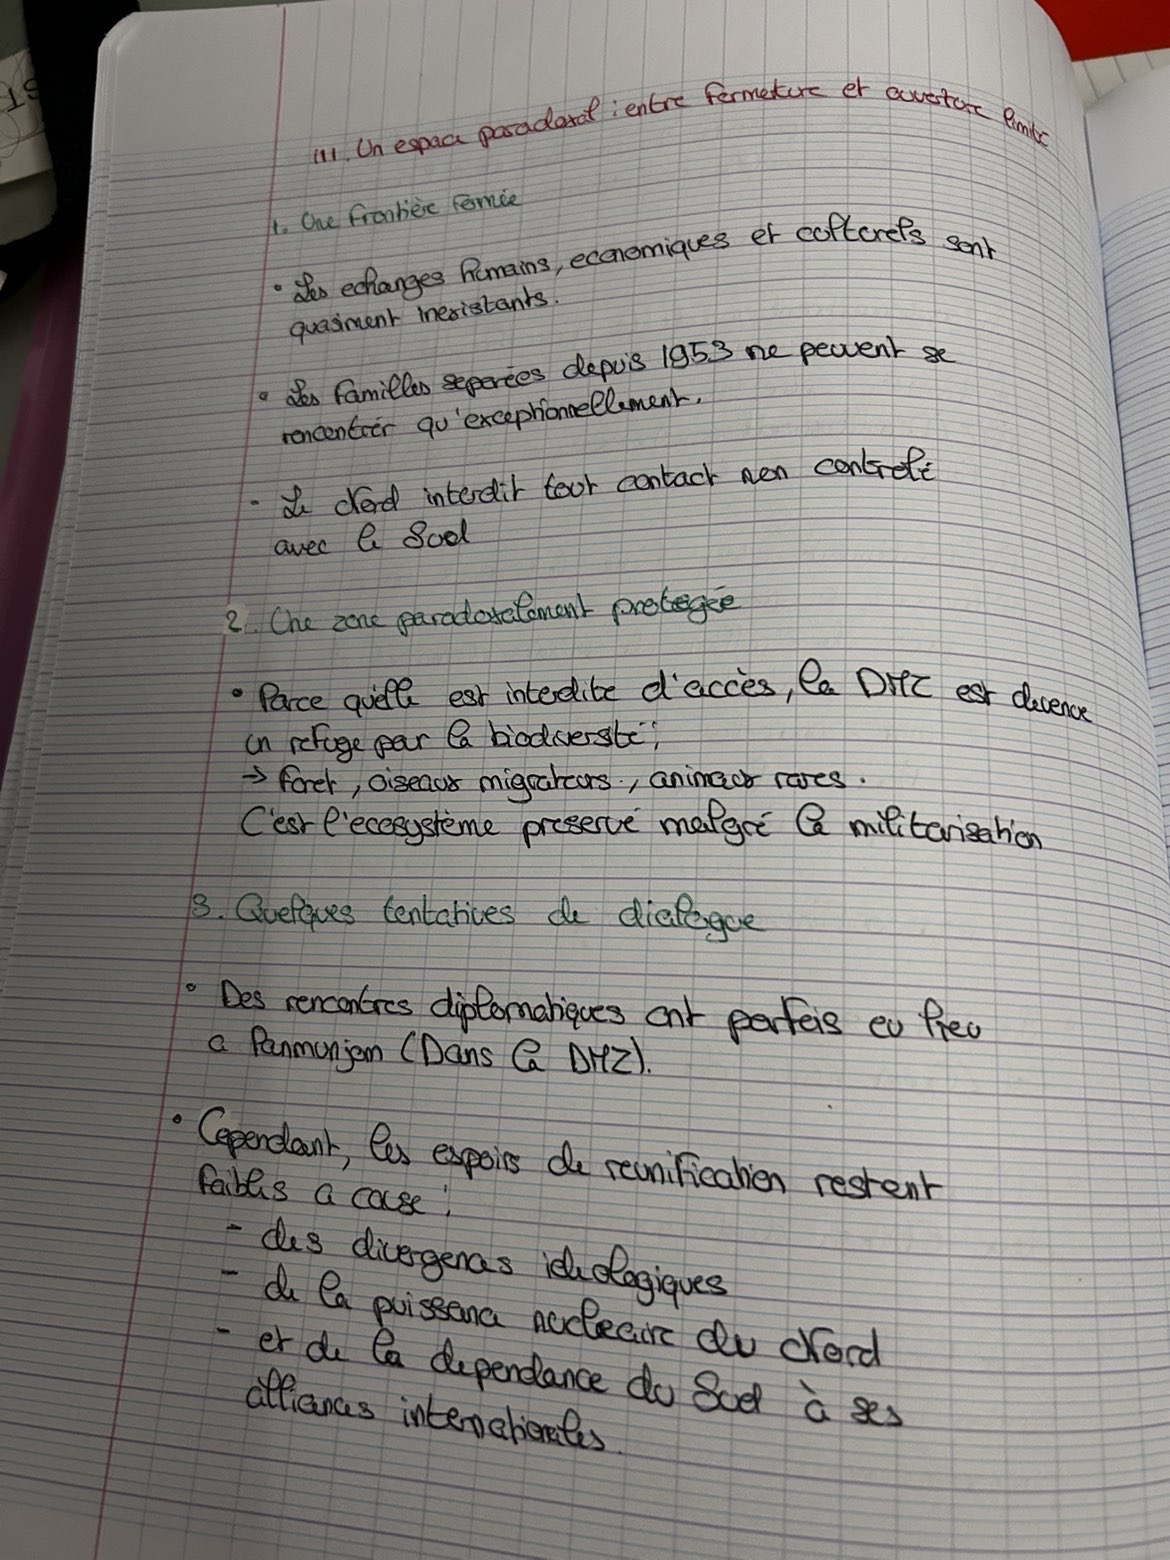 III. Un espace paradoxal : entre fermeture et ouverture limite
1. Une frontière fermée
• Les echanges humains, economiques et culturels sont
quasiment inexistants.
• Les familles separées depuis 1953 ne peuvent se
rencontrer qu'exceptionnellement.
- Le Nord interdit tout contact non controlé
avec le Sud
2. Une zone paradoxalement protégée
• Parce qu'elle est interdite d'accès, la DMZ est devenue
un refuge par la biodiversité ;
→ foret, oiseaux migrateurs, animaux rares.
C'est l'ecosystème preservé malgré la militarisation
3. Quelques tentatives de dialogue
• Des rencontres diplomatiques ont parfois eu lieu
a Panmunjom (Dans la DMZ).
• Cependant, les espoirs de reunification restent
faibles a cause :
- des divergences ideologiques
- de la puissance nucleaire du Nord
- et de la dependance du Sud à ses
alliances internationales.